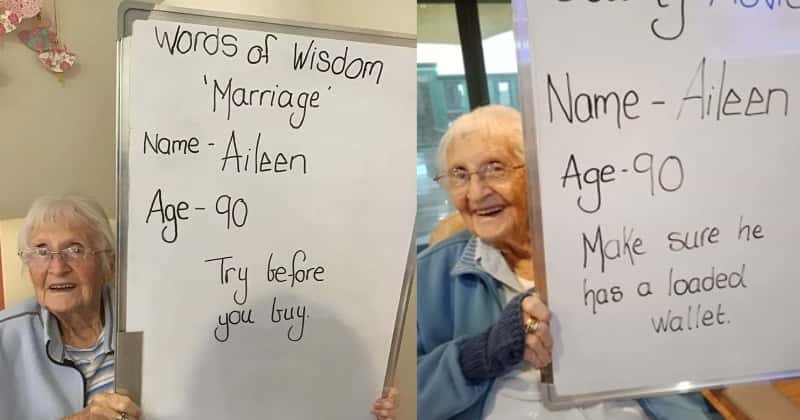 Words of Wisdom
'Marriage'
Name - Aileen
Age - 90
Try before
you buy.
Name - Aileen
Age - 90
Make sure he
has a loaded
wallet.